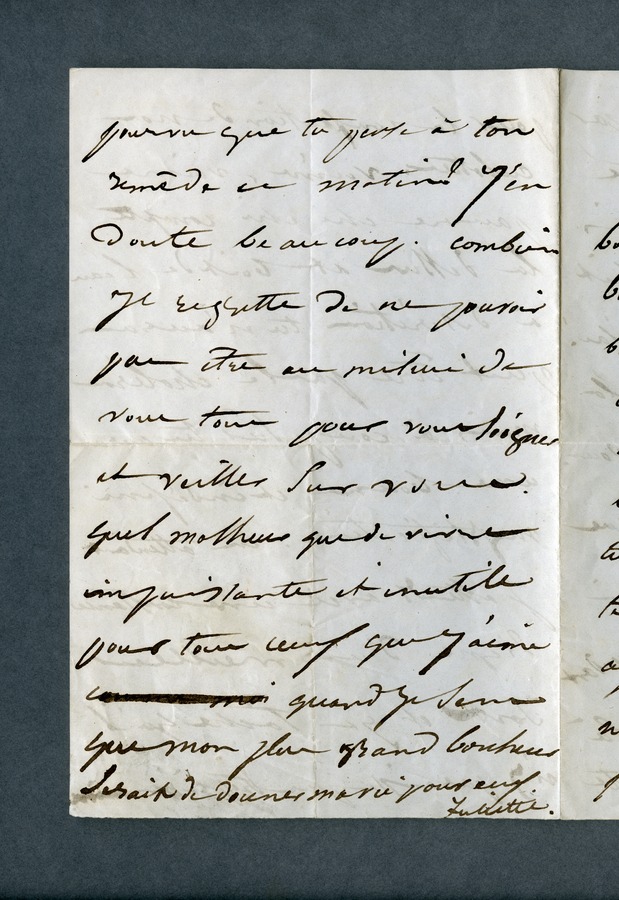 pourvu que tu pense à ton
remède ce matin? J'en
doute beaucoup. combien
je regrette de ne pouvoir
pas être au milieu de
vous tous pour vous soigner
et veiller sur vous.
quel malheur que de vivre
impuissante et inutile
pour tous ceux que j'aime
quand je sens
que mon plus grand bonheur
serait de donner ma vie pour eux
Juliette.